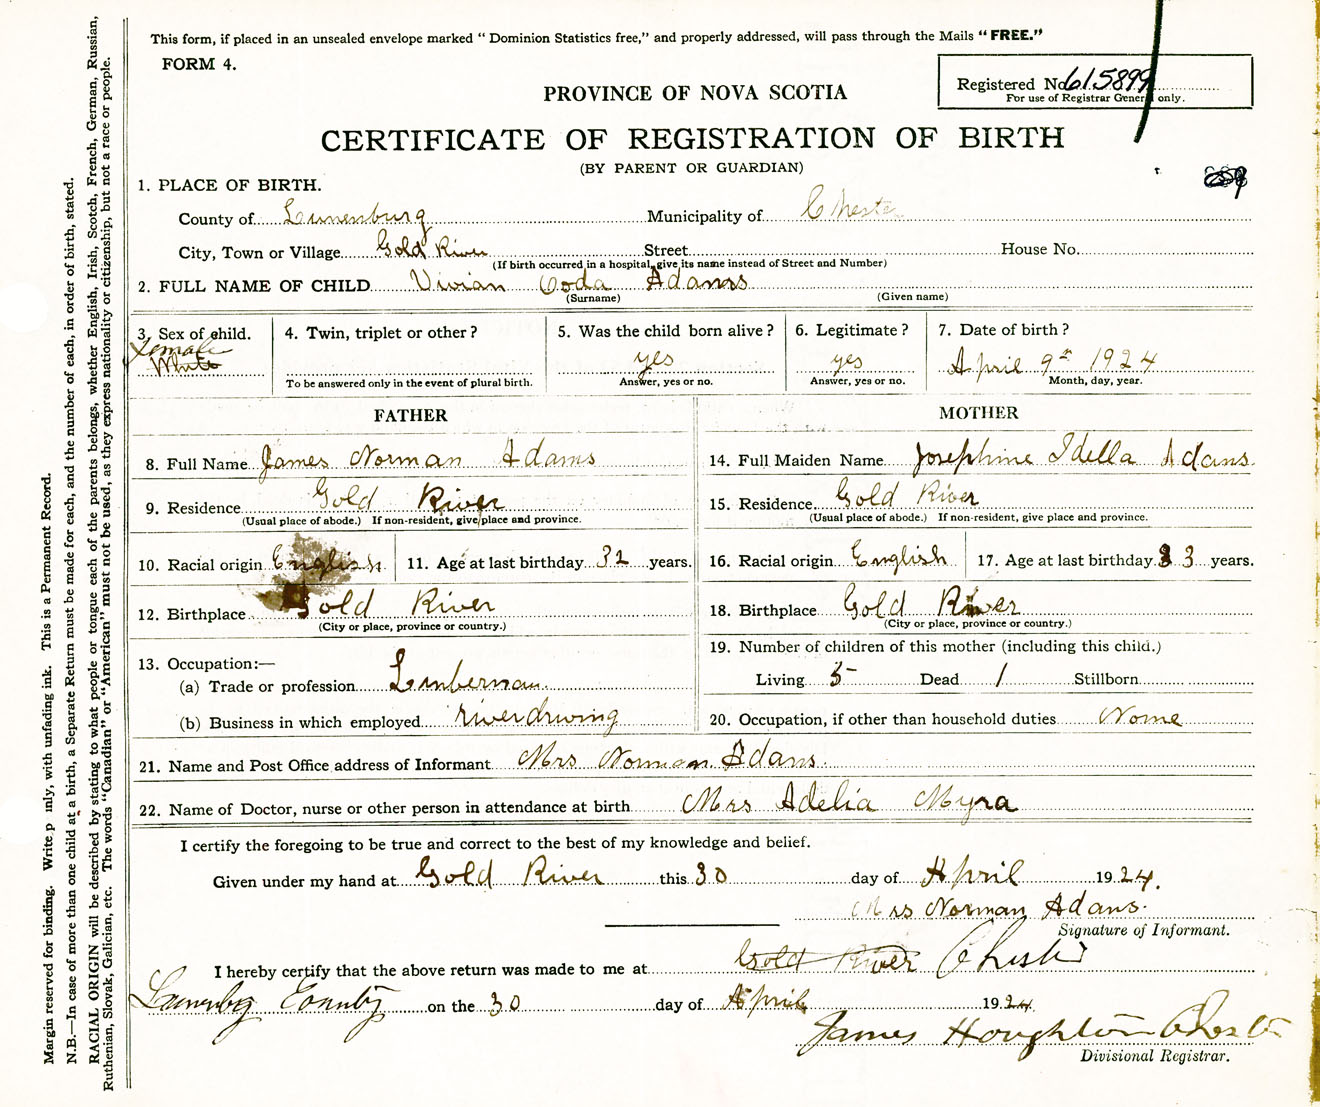 This form, if placed in an unsealed envelope marked “ Dominion Statistics free,” and properly addressed, will pass through the Mails “FREE.”
FORM 4.
Registered No 615899
For use of Registrar General only.
PROVINCE OF NOVA SCOTIA
CERTIFICATE OF REGISTRATION OF BIRTH
(BY PARENT OR GUARDIAN)
1. PLACE OF BIRTH.
County of Lunenburg Municipality of Chester
City, Town or Village Gold River Street House No.
(If birth occurred in a hospital, give its name instead of Street and Number)
2. FULL NAME OF CHILD Vivian Ooda Adams
(Surname) (Given name)
3. Sex of child. 4. Twin, triplet or other? 5. Was the child born alive? 6. Legitimate? 7. Date of birth?
Female
White yes yes April 9th 1924
To be answered only in the event of plural birth. Answer, yes or no. Answer, yes or no. Month, day, year.
FATHER MOTHER
8. Full Name James Norman Adams 14. Full Maiden Name Josephine Idella Adans
9. Residence Gold River 15. Residence Gold River
(Usual place of abode.) If non-resident, give place and province. (Usual place of abode.) If non-resident, give place and province.
10. Racial origin English 11. Age at last birthday 32 years. 16. Racial origin English 17. Age at last birthday 33 years.
12. Birthplace Gold River 18. Birthplace Gold River
(City or place, province or country.) (City or place, province or country.)
13. Occupation:— 19. Number of children of this mother (including this child.)
(a) Trade or profession Lumberman Living 5 Dead 1 Stillborn
(b) Business in which employed riverdriving 20. Occupation, if other than household duties None
21. Name and Post Office address of Informant Mrs Norman Adans
22. Name of Doctor, nurse or other person in attendance at birth Mrs Adelia Myra
I certify the foregoing to be true and correct to the best of my knowledge and belief.
Given under my hand at Gold River this 30 day of April 1924.
Mrs Norman Adans.
Signature of Informant.
I hereby certify that the above return was made to me at Gold River Chester
Lunenbg County on the 30 day of April 1924.
James Houghton Chester
Divisional Registrar.
Margin reserved for binding. Write p mly, with unfading ink. This is a Permanent Record.
N.B.—In case of more than one child at a birth, a Separate Return must be made for each, and the number of each, in order of birth, stated.
RACIAL ORIGIN will be described by stating to what people or tongue each of the parents belongs, whether English, Irish, Scotch, French, German, Russian,
Ruthenian, Slovak, Galician, etc. The words “Canadian” or “American” must not be used, as they express nationality or citizenship, but not a race or people.